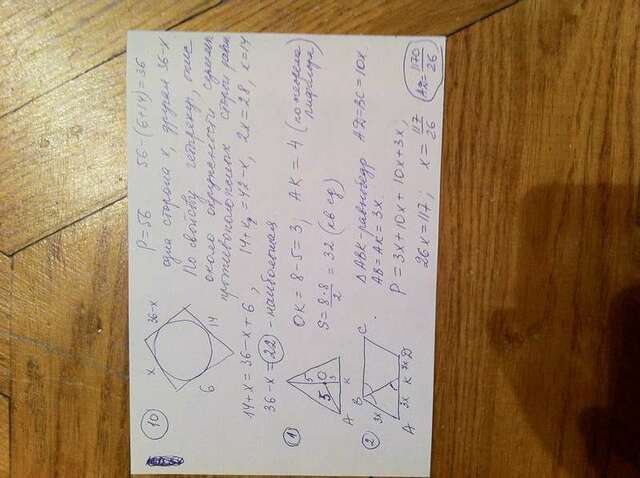 10
x
36-x
6
14
P=56 56-(6+14)=36
одна сторона x, другая 36-x
По свойству четыреху, опис
около окружности суммы
противоположных сторон равны
14+x=36-x+6, 14+x=42-x, 2x=28, x=14
36-x=22 - наибольшая
1
5
5
O
3
A
K
OK=8-5=3, AK=4 (по теореме
пифагора)
S=8·8/2=32 (кв ед)
2
B
C
3x
A
3x
K
7x
D
△ABK-равнобедр AD=BC=10x.
AB=AK=3x
P=3x+10x+10x+3x,
26x=117; x=117/26
AD=1170/26